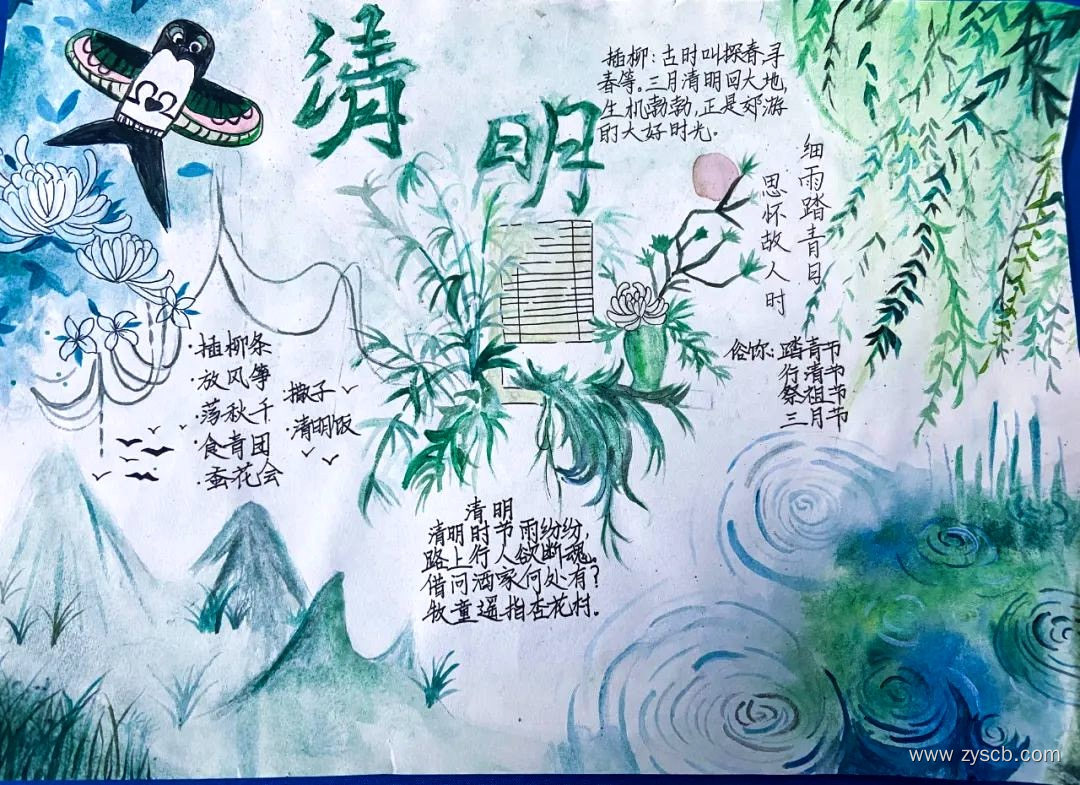 清明
插柳：古时叫探春寻
春等。三月清明回大地，
生机勃勃，正是郊游
的大好时光。
细雨踏青日
思怀故人时
·插柳条
·放风筝
·荡秋千
·食青团
·蚕花会
·撒子
·清明饭
俗称：踏青节
行清节
祭祖节
三月节
清明
清明时节雨纷纷，
路上行人欲断魂。
借问酒家何处有？
牧童遥指杏花村.
www.zyscb.com